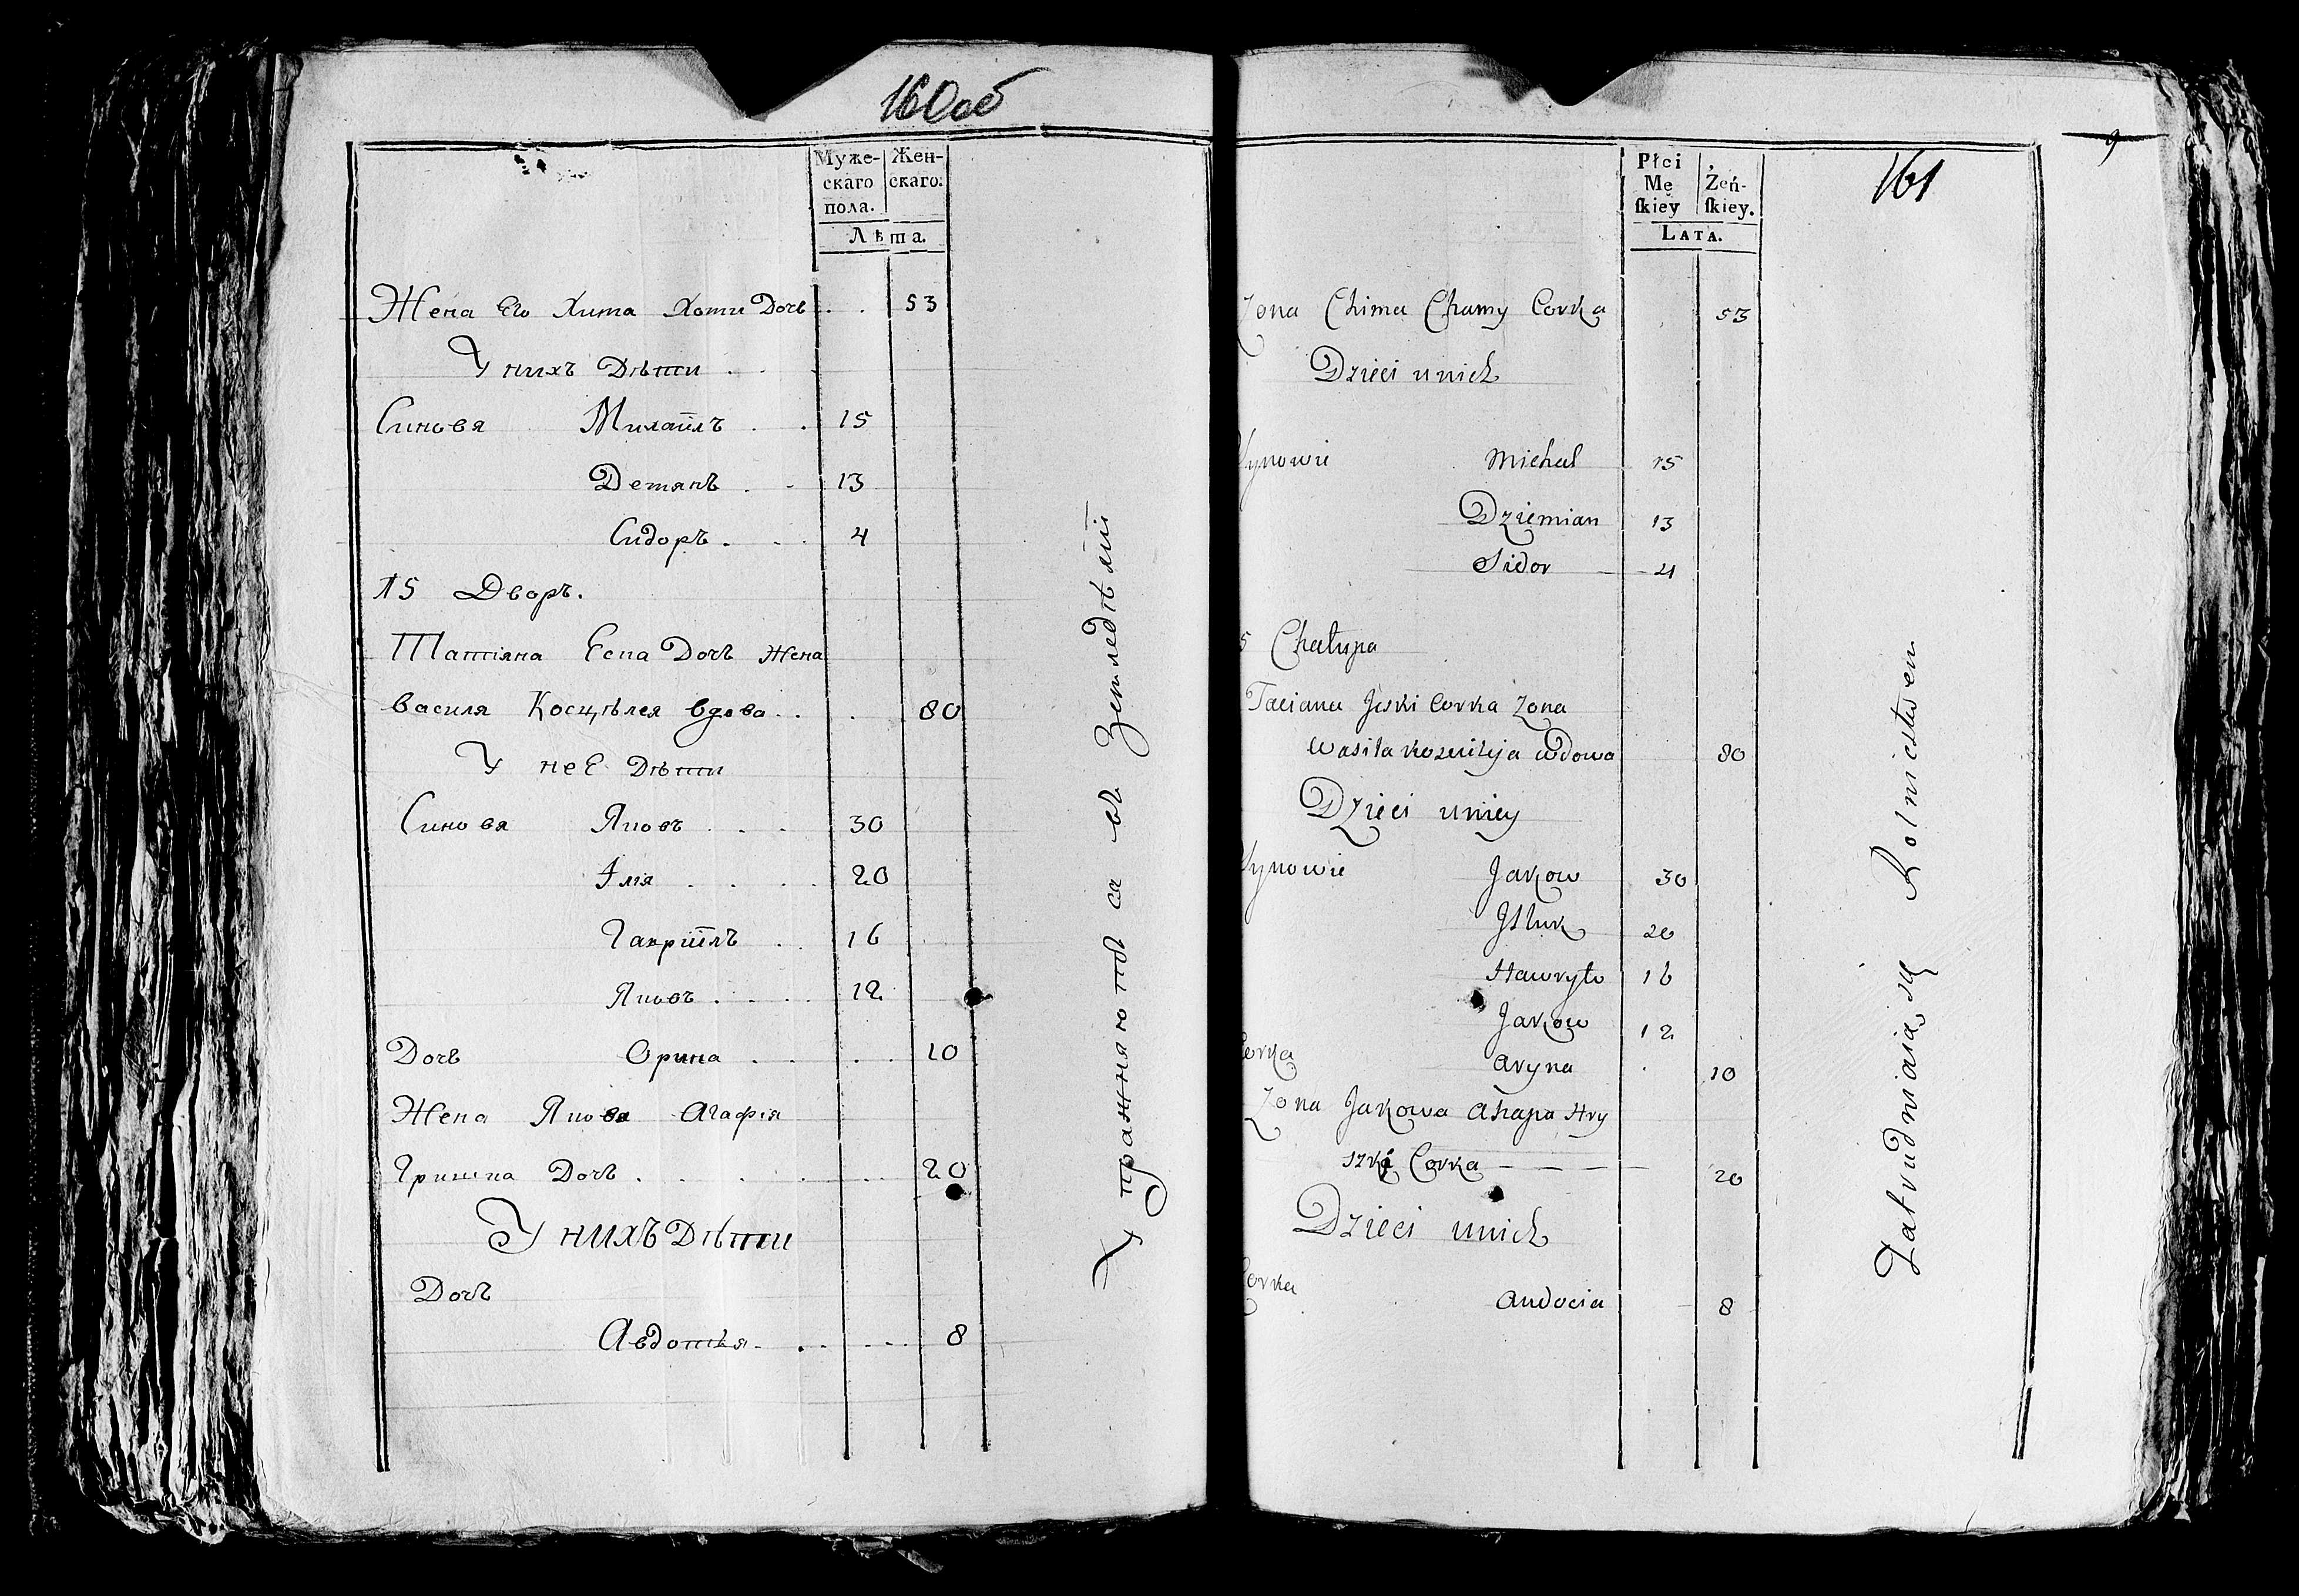 160об
Муже-
скаго
пола.
Жен-
скаго.
Лѣта.
Жена Его Хима Хоми Дочь . . 53
У нихъ Дѣти . .
Синовя Михайлъ . . 15
Демянъ . . 13
Сидоръ . . . 4
15 Дворъ.
Татіяна Еска Дочь жена
Василя вдова . . . 80
У неЕ Дѣти
Синовя Яковъ . . . 30
Ілія . . . . 20
Гавріилъ . . 16
Яковъ . . . . 12
Дочь Орина . . . . 10
Жена Якова Агафія
Гришка Дочь . . . . . . 20
У нихъ Дѣти
Дочь
Авдотья . . . . . 8
Упражняютъ ся въ Земледѣлій
9
161
Płci
Mę
skiey
Żeń-
skiey.
LATA.
Zona Chima Chamy Corka 53
Dzieci unich
Synowie Michał 15
Dziemian 13
Sidor 4
5 Chałupa
Taciana Jeski Corka Zona
Wasila wdowa 80
Dzieci uniey
Synowie Jakow 30
20
Hawryło 16
Jakow 12
Corka Aryna 10
Zona Jakowa Ahapa Hry
szki Corka — — — — 20
Dzieci unich
Corka Audocia 8
Zatrudniaią się Rolnictwem